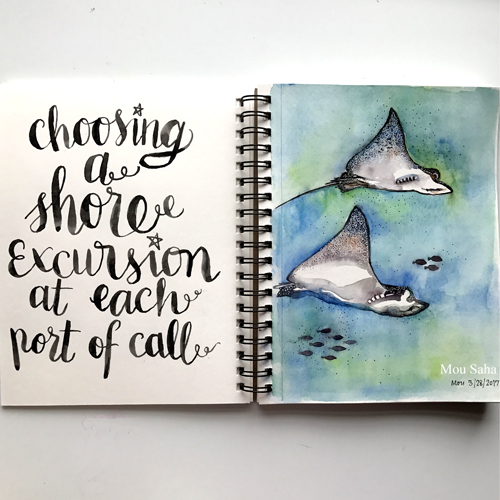 choosing
a
shore
Excursion
at each
port of call
Mou Saha
Mou 3/28/2017